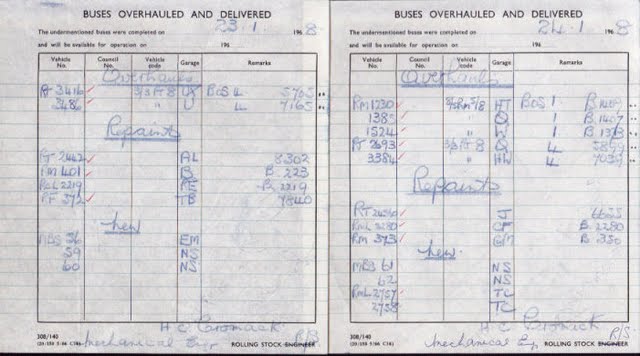 BUSES OVERHAULED AND DELIVERED
The undermentioned buses were completed on 23.1 196 8
and will be available for operation on " 196
Vehicle No. Council No. Vehicle code Garage Remarks
Overhauls
RT 3416 3/3 RT 8 BOS 4 5765
3486 " U 4 7165
Repaints
RT 2442 AL 8302
RM 401 B B. 223
RML 2219 B. 2219
RF 372 TB 7840
New
MBS 36 EM
59 NS
60 NS
H C
308/140 Mechanical Eng. R/S
ROLLING STOCK ENGINEER
BUSES OVERHAULED AND DELIVERED
The undermentioned buses were completed on 24.1 196 8
and will be available for operation on " 196
Vehicle No. Council No. Vehicle code Garage Remarks
Overhauls
RM 1230 HT BOS 1 B.1409
1385 " Q 1 B.1407
1524 " W 1 B.1373
RT 2693 3/3 RT 8 Q 4 5899
3384 " HW 4 7039
Repaints
RT J 6635
RML 2280 CF B. 2280
RM 373 B. 350
New
MBS 61 NS
62 NS
RML 2757 TC
2758 TC
H C
308/140 Mechanical Eng. R/S
ROLLING STOCK ENGINEER